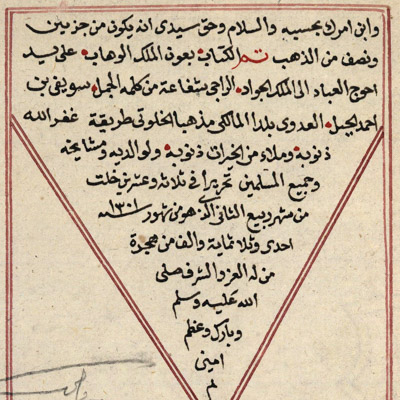 وابن امرك بحسبه والسلام وحق سيدى انه يكون من جزئين
ونصف من الذهب تم الكتاب بعون الملك الوهاب على يد
احوج العباد الى الملك الجواد الراجى شفاعة من كلمه الجمل سويفى بن
احمد الجبيل العدوى بلدا المالكى مذهبا الخلوتى طريقة غفر الله
ذنوبه وملاء من الخيرات ذنوبه ولوالديه ومشايخه
وجميع المسلمين تحريرا فى ثلاثة وعشرين خلت
من شهر ربيع الثانى الذى هو من شهور ١٣٠١
احدى وثلاثماية والف من هجرة
من له العز والشرف صلى
الله عليه وسلم
وبارك وعظم
امين
م